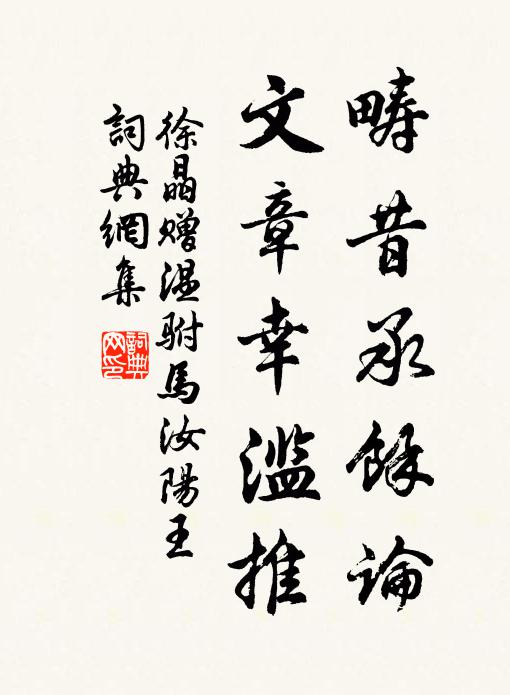 疇昔承餘論
文章幸濫推
徐晶赠温駙馬汝陽王
詞典網集
詞典網印